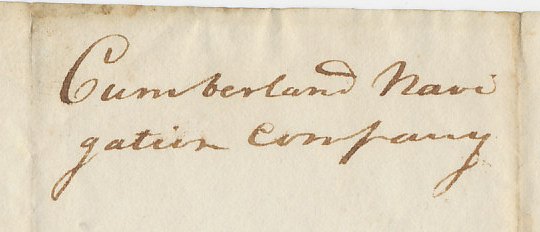 Cumberland Navi
gation Company